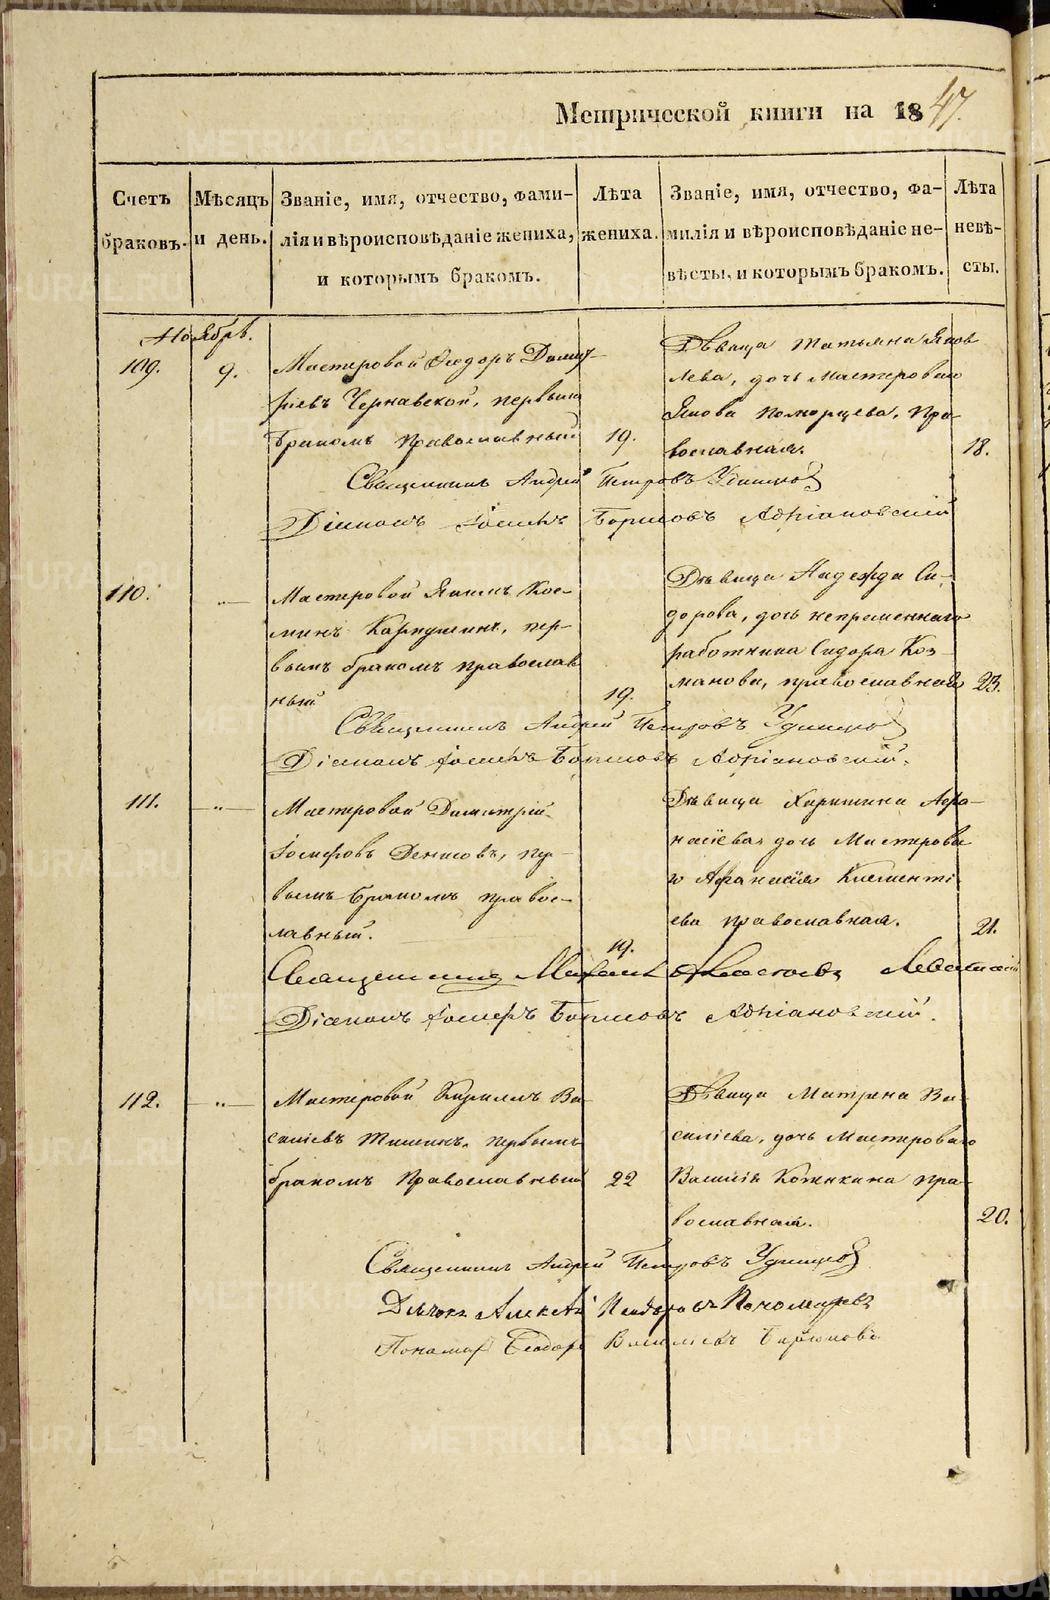 Метрической книги на 1847.
Счетъ браковъ.
Мѣсяцъ и день.
Званіе, имя, отчество, фами-
лія и вѣроисповѣданіе жениха,
и которымъ бракомъ.
Лѣта жениха.
Званіе, имя, отчество, фа-
милія и вѣроисповѣданіе не-
вѣсты, и которымъ бракомъ.
Лѣта невѣ-
сты.
Ноябрь.
109.
9.
Мастеровой Ѳедоръ Димит-
ріевъ Чернавской, первымъ
бракомъ православный
19.
Дѣвица Татьяна Яков
лева, дочь мастероваго
Якова Поморцева, пра-
вославная.
18.
Священникъ Андрей Петровъ Удинцов
Діаконъ Іосифъ Борисовъ Адріановскій
110.
-"-
Мастеровой Якимъ Кос-
минъ Карпушинъ, пер-
вымъ бракомъ православ
ный
19.
Дѣвица Надежда Си-
дорова, дочь непременнаго
работника Сидора Коз-
манова, православная
23.
Священникъ Андрей Петровъ Удинцов
Діаконъ Іосифъ Борисовъ Адріановскій.
111.
-"-
Мастеровой Димитрій
Іосифовъ Денисовъ, пер-
вымъ бракомъ правос-
лавный.
19.
Дѣвица Харитина Афа-
насіева дочь Мастерова
го Афанасія Клементі-
ева православная.
21.
Священникъ Михаил
Діаконъ Іосифъ Борисовъ Адріановскій.
112.
-"-
Мастеровой Кирилъ Ва-
силіевъ Тишинъ, первымъ
бракомъ Православный
22
Дѣвица Матрена Ва-
силіева, дочь мастероваго
Василія Кожикина пра-
вославная.
20.
Священникъ Андрей Петровъ Удинцов
Дьячокъ Алексѣй Пономаревъ
Пономарь Ѳеодоръ Васильевъ Бирюковъ